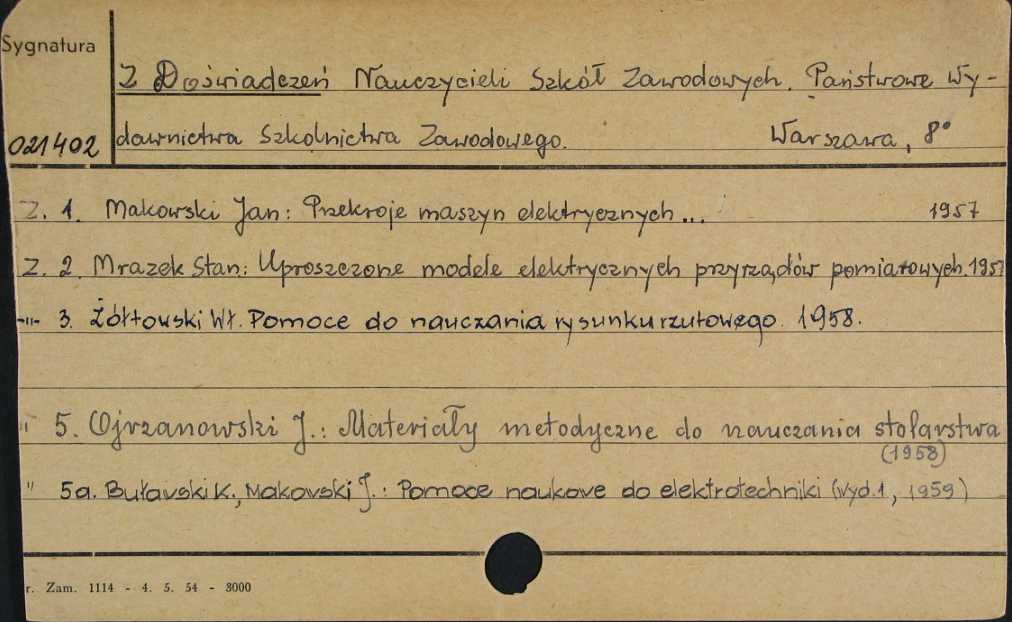 Sygnatura
Z Doświadczeń Nauczycieli Szkół Zawodowych. Państwowe Wy-
021402 dawnictwa Szkolnictwa Zawodowego. Warszawa, 8°
Z. 1. Makowski Jan: Przekroje maszyn elektrycznych... 1957
Z. 2. Mrazek Stan: Uproszczone modele elektrycznych przyrządów pomiarowych. 1957
-"- 3. Żółtowski Wł. Pomoce do nauczania rysunku rzutowego. 1958.
" 5. Ojrzanowski J.: Materiały metodyczne do nauczania stolarstwa
(1958)
" 5a. Buławski K., Makowski J.: Pomoce naukowe do elektrotechniki (wyd. 1, 1959)
r. Zam. 1114 - 4. 5. 54 - 3000